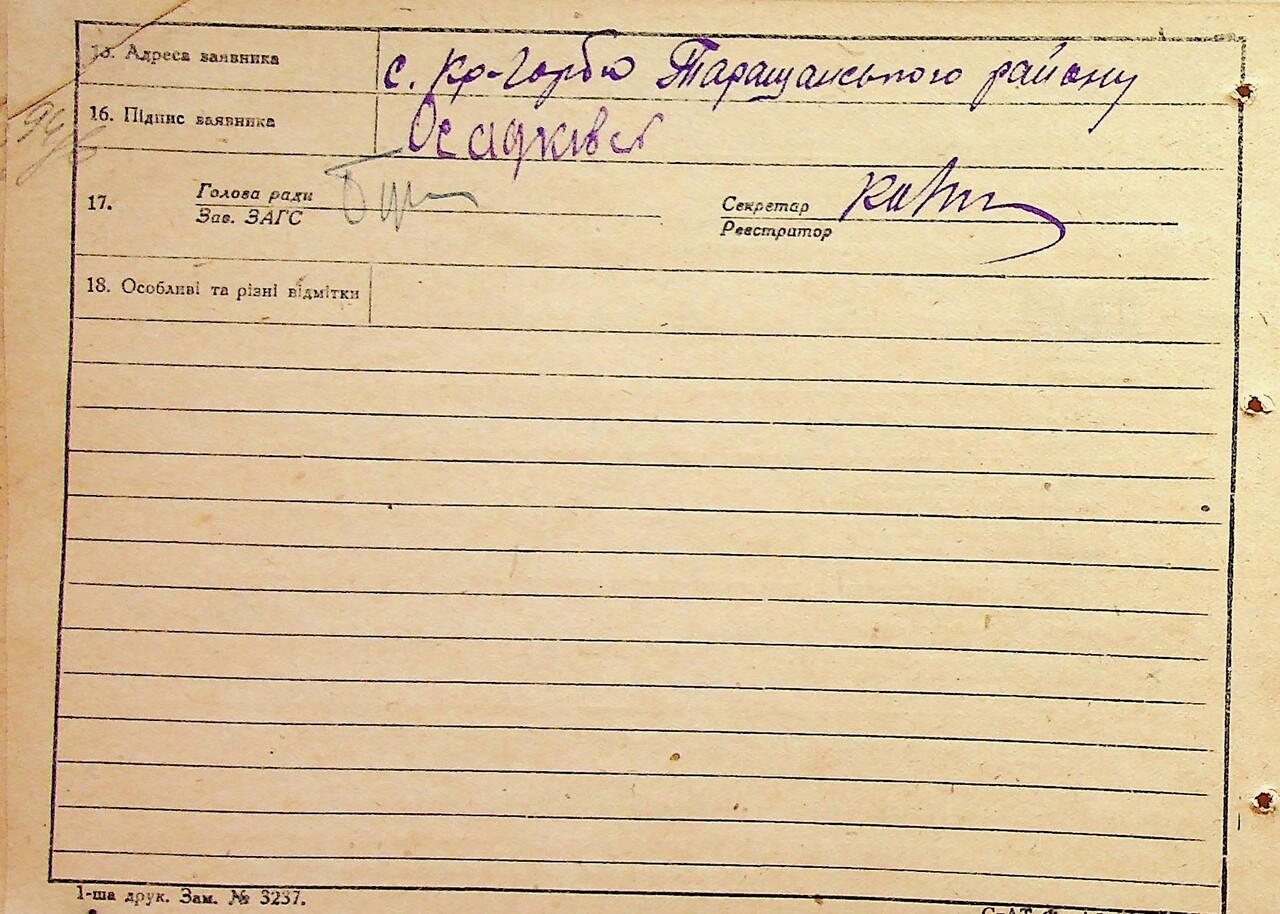 15. Адреса заявника с. Кр-Горбю Таращанського району
16. Підпис заявника
17. Голова ради
Зав. ЗАГС
Секретар
Реєстратор
18. Особливі та різні відмітки
1-ша друк. Зам. № 3237.